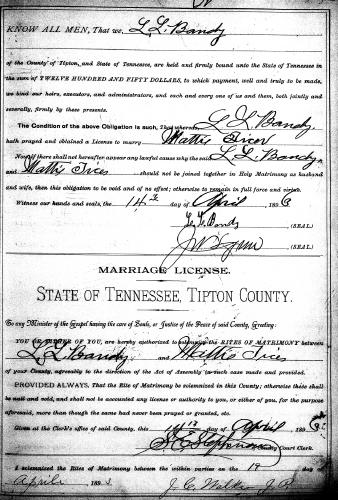 KNOW ALL MEN, That we L. L. Bandy
of the County of Tipton, and State of Tennessee, are held and firmly bound unto the State of Tennessee in
the sum of TWELVE HUNDRED AND FIFTY DOLLARS, to which payment, well and truly to be made,
we bind our heirs, executors, and administrators, and each and every one of us and them, both jointly and
severally, firmly by these presents.
The Condition of the above Obligation is such, That whereas, L. L. Bandy
hath prayed and obtained a License to marry Mattie
Now if there shall not hereafter appear any lawful cause why the said L. L. Bandy
and Mattie should not be joined together in Holy Matrimony as husband
and wife, then this obligation to be void and of no effect; otherwise to remain in full force and virtue.
Witness our hands and seals, the 14th day of April 1896
L. L. Bandy (SEAL)
(SEAL)
MARRIAGE LICENSE.
STATE OF TENNESSEE, TIPTON COUNTY.
To any Minister of the Gospel having the care of Souls, or Justice of the Peace of said County, Greeting:
YOU OR EITHER OF YOU, are hereby authorized to solemnize the RITES OF MATRIMONY between
L. L. Bandy and Mattie
of your County, agreeably to the direction of the Act of Assembly in such case made and provided.
PROVIDED ALWAYS, That the Rite of Matrimony be solemnized in this County; otherwise these shall
be null and void, and shall not be accounted any license or authority to you, or either of you, for the purpose
aforesaid, more than though the same had never been prayed or granted, etc.
Given at the Clerk's office of said County, this day of April 189
County Court Clerk.
I solemnized the Rites of Matrimony between the within parties on the 19 day of
April 189 J. C. J. P.